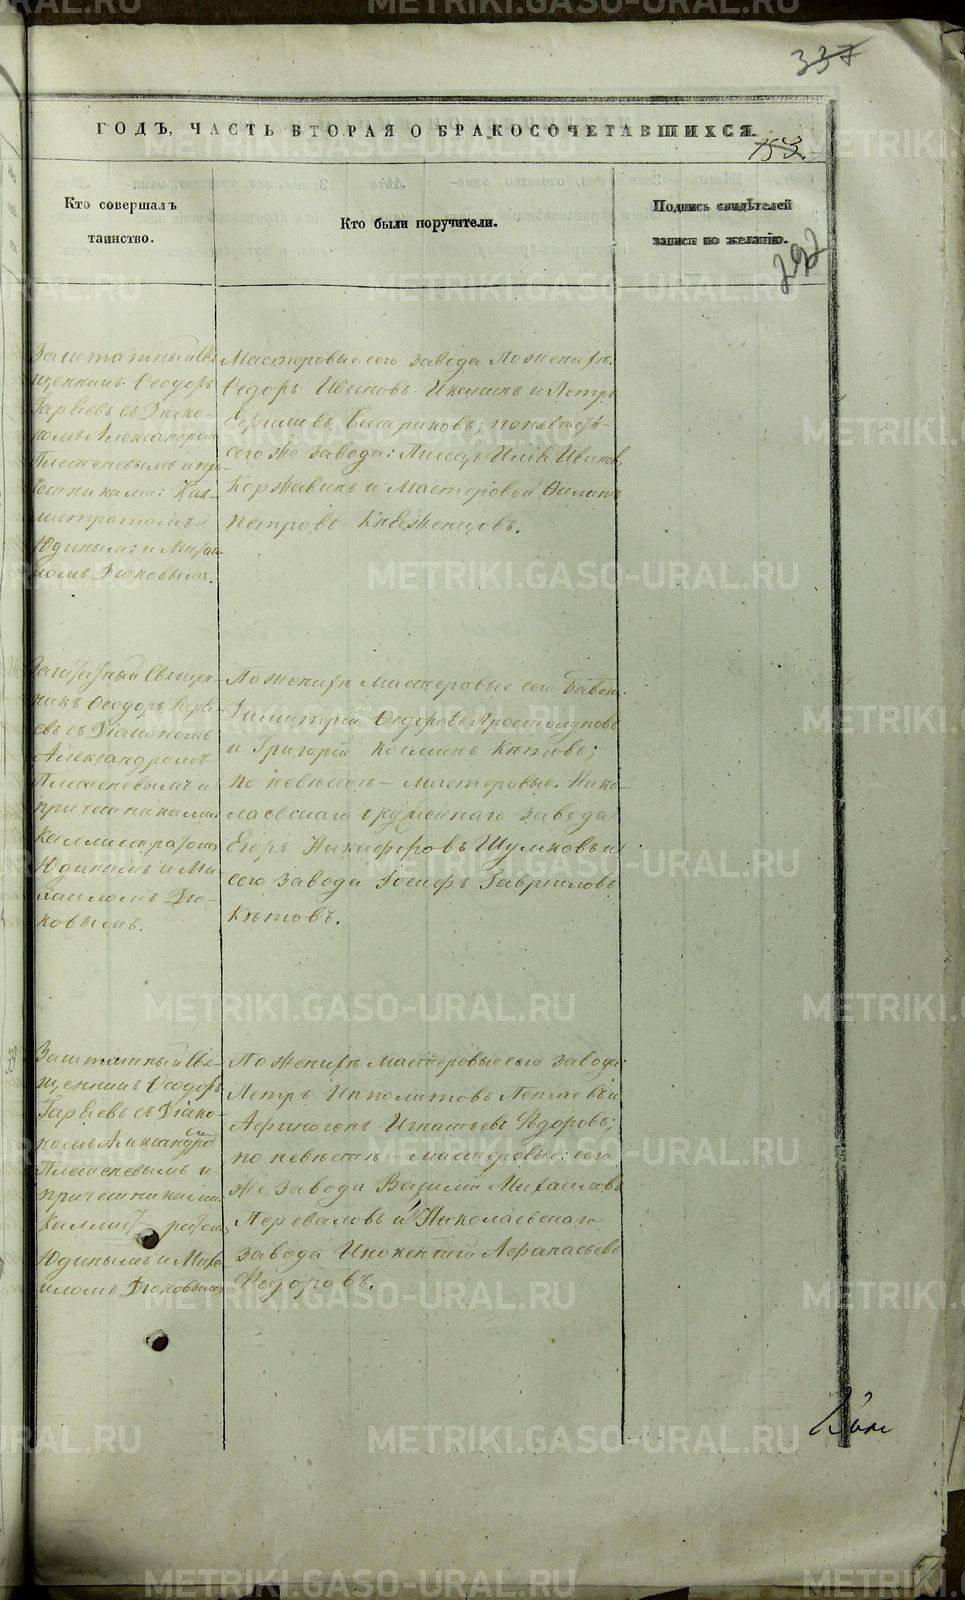 337
ГОДЪ, ЧАСТЬ ВТОРАЯ О БРАКОСОЧЕТАВШИХСЯ.
153.
Кто совершалъ
таинство.
Кто были поручители.
Подпись свидѣтелей
записи по желанію.
292
Заштатный Свя
щенникъ Ѳеодоръ
съ Діако-
номъ Александромъ
Плетеневымъ и при-
четниками: Кал-
листратомъ
Юдинымъ и Миха-
ломъ Дюковымъ.
Мастеровые сего завода По женихѣ:
Ѳедоръ Ивановъ и Петръ
по невѣстѣ-
сего же завода: Иванов
Коржавинъ и Мастеровой Филипъ
Петровъ Княженцовъ.
Заштатный Священ-
никъ Ѳеодоръ
съ Діакономъ
Александромъ
Плетеневымъ и
причетниками:
Каллистратомъ
Юдинымъ и Ми
хаиломъ Дю-
ковымъ.
По женихѣ мастеровые сего Завода:
Димитрій Ѳедоровъ
и Григорій Косминъ Кѣтовъ;
по невѣстѣ - мастеровые: Нико-
лаевскаго оружейнаго завода
Егоръ Никифоровъ Шумковъ и
сего завода Іосифъ Гавриловъ
Кѣтовъ.
Заштатный Свя-
щенникъ Ѳеодоръ
съ Діако-
номъ Александромъ
Плетеневымъ и
причетниками:
Каллистратомъ
Юдинымъ и Миха
иломъ Дюковымъ
По женихѣ мастеровые сего завода:
Петръ Ипполитовъ и
Афиногенъ Игнатьевъ Ѳедоровъ;
по невѣстѣ - мастеровые: сего
же завода Василій Михаиловъ
Переваловъ и Николаевскаго
завода Инокентій Афанасьевъ
Федоровъ.
METRIKI.GASO-URAL.RU